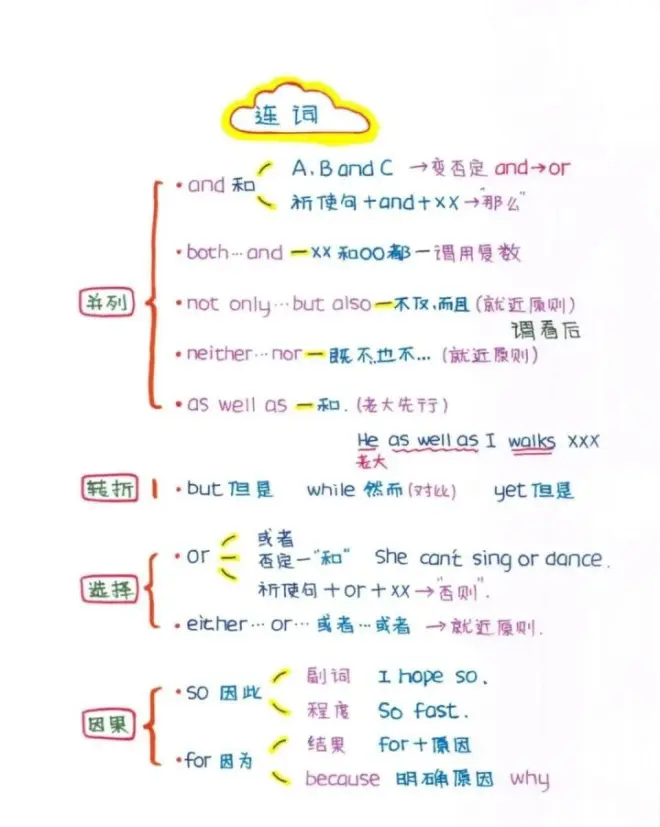 连词
并列
·and 和 A、B and C →变否定 and→or
祈使句+and+xx→"那么"
·both…and —xx和oo都—谓用复数
·not only…but also—不仅,而且(就近原则)
谓看后
·neither…nor—既不,也不…(就近原则)
·as well as —和.(老大先行)
He as well as I walks xxx
老大
转折 ·but但是 while然而(对比) yet但是
选择
·or 或者
否定—"和" She can't sing or dance.
祈使句+or+xx→"否则".
·either…or…或者…或者 →就近原则.
因果
·so 因此 副词 I hope so.
程度 So fast.
·for因为 结果 for+原因
because 明确原因 why